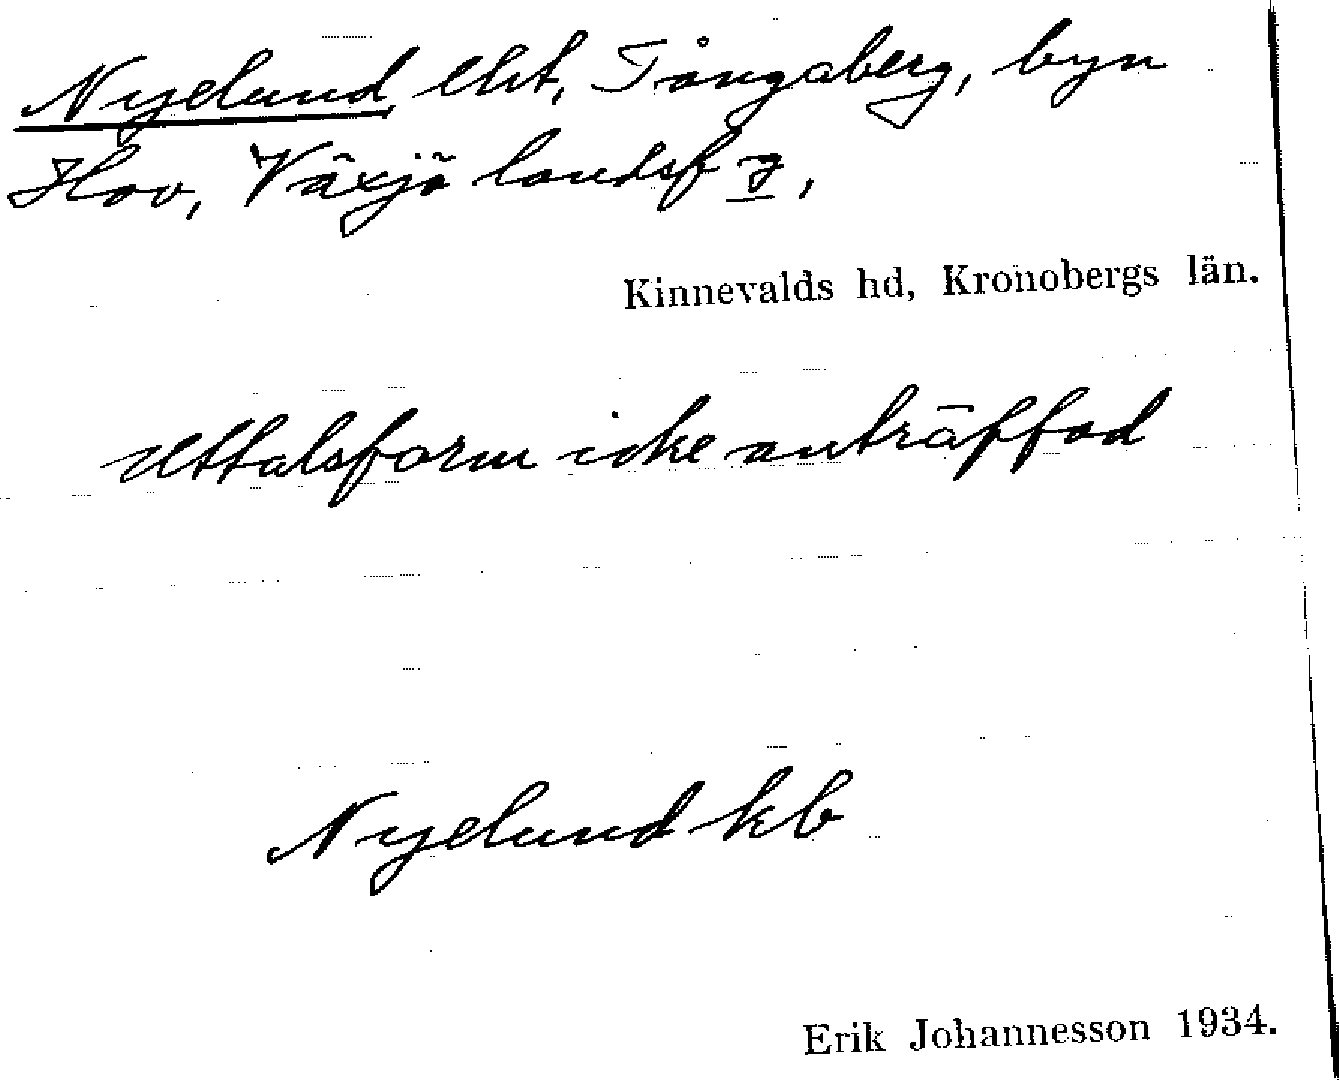 Nyelund, lht, Tångaberg, byn
Hov, Växjö landsf g,
Kinnevalds hd, Kronobergs län.
Uttalsform icke anträffad
Nyelund kb
Erik Johannesson 1934.